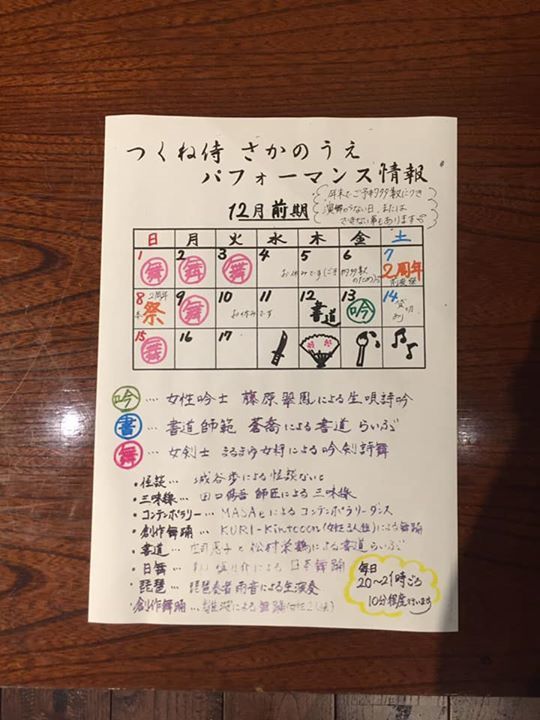 つくね侍 さかのうえ
パフォーマンス情報
年末でご予約多数につき
演舞がない日、または
できない事もあります
12月前期
日 月 火 水 木 金 土
1 2 3 4 5 6 7
舞 舞 舞 お休みです(ご予約多数のため) 2周年
前夜祭
8 9 10 11 12 13 14
2周年
祭 舞 お休みです 書道 吟 貸切
15 16 17
舞
吟 … 女性吟士 藤原翠風による生唄詩吟
書 … 書道師範 蒼喬による書道らいぶ
舞 … 女剣士 まるまう女将による吟剣詩舞
・怪談… 城谷歩による怪談ないと
・三味線… 田口 師匠による三味線
・コンテンポラリー… MASAeによるコンテンポラリーダンス
・創作舞踊… KURI-Kintocon(女性 人組)による舞踊
・書道… 恵子と松村栄鶴による書道らいぶ
・日舞… による日本舞踊
・琵琶… 琵琶奏者 雨音による生演奏
創作舞踊… による舞踊
毎日
20〜21時ごろ
10分程度 行います